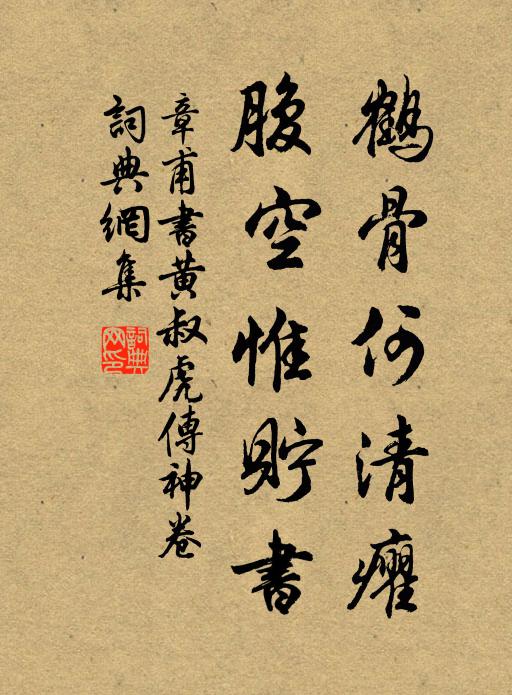 鶴骨何清癯
腹空惟貯書
章甫書黄叔虎傳神卷
詞典網集
詞典网印